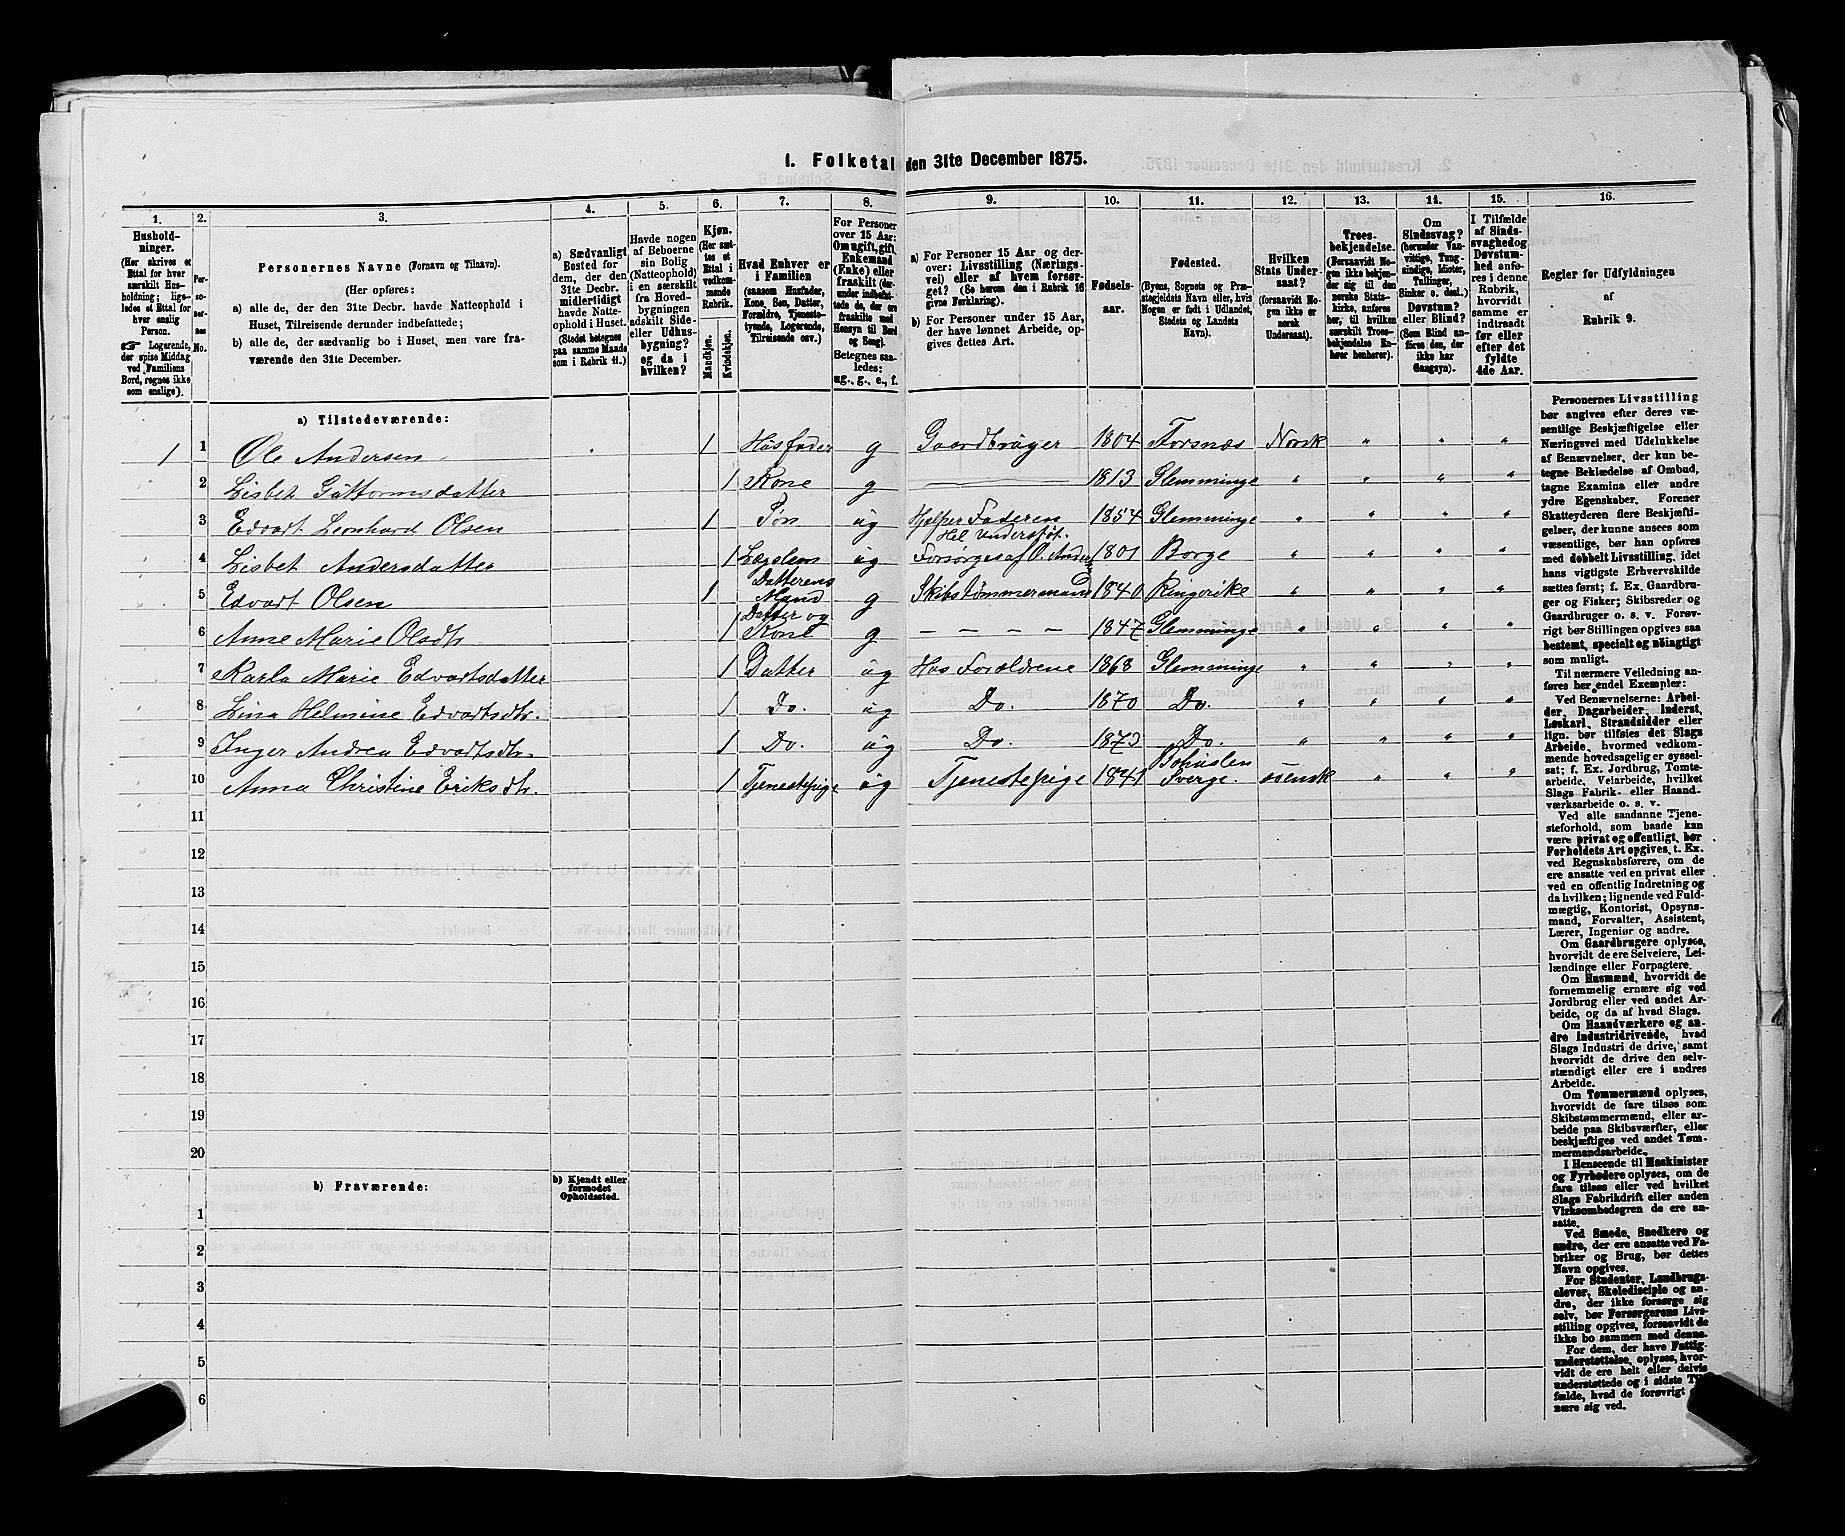 1. Folketal den 31te December 1875.
1.
2.
3.
4.
5.
6.
7.
8.
9.
10.
11.
12.
13.
14.
15.
16.
Hushold-
ninger.
(Her skrives et
Ettal for hver
særskilt Hus-
holdning; lige-
ledes et Ettal for
hver enslig
Person.
☛ Logerende,
der spise Middag
ved Familiens
Bord, regnes ikke
som enslige).
Per-
so-
ner-
nes
No.
Personernes Navne (Fornavn og Tilnavn).
(Her opføres:
a) alle de, der den 31te Decbr. havde Natteophold i
Huset, Tilreisende derunder indbefattede;
b) alle de, der sædvanlig bo i Huset, men vare fra-
værende den 31te December.
a) Sædvanligt
Bosted for
dem, der den
31te Decbr.
midlertidigt
havde Natte-
ophold i Huset.
(Stedet betegnes
paa samme Maade
som i Rubrik 11.)
Havde nogen
af Beboerne
sin Bolig
(Natteophold)
i en særskilt
fra Hoved-
bygningen
adskilt Side-
eller Udhus-
bygning?
og da i
hvilken?
Kjøn.
(Her sæt-
tes et
Ettal i
vedkom-
mende
Rubrik.
Mandkjøn.
Kvindekjøn.
Hvad Enhver er
i Familien
(saasom Husfader,
Kone, Søn, Datter,
Forældre, Tjeneste-
tyende, Logerende,
Tilreisende osv.).
For Personer
over 15 Aar:
Om ugift, gift,
Enkemand
(Enke) eller
fraskilt (der-
under indbefat-
tede de, der ere
fraskilte med
Hensyn til Bord
og Seng).
Betegnes saa-
ledes:
ug., g., e., f.
a) For Personer 15 Aar og der-
over: Livsstilling (Nærings-
vei) eller af hvem forsør-
get? (Se herom den i Rubrik 16
givne Forklaring).
b) For Personer under 15 Aar,
der have lønnet Arbeide, op-
gives dettes Art.
Fødsels-
aar.
Fødested.
(Byens, Sognets og Præ-
stegjeldets Navn eller, hvis
Nogen er født i Udlandet,
Stedets og Landets
Navn).
Hvilken
Stats Under-
saat?
(forsaavidt No-
gen ikke er
norsk
Undersaat).
Troes-
bekjendelse.
(Forsaavidt No-
gen ikke bekjen-
der sig til den
norske Stats-
kirke, anføres
her, til hvilken
særskilt Troes-
bekjendelse En-
hver henhører).
Om
Sindssvag?
(herunder Van-
vittige, Tung-
sindige, Idioter,
Tullinger,
Sinker o. desl.)
Døvstum?
eller Blind?
(Som Blind an-
føres den, der
ikke har
Gangsyn).
I Tilfælde
af Sinds-
svaghed og
Døvstum-
hed anfø-
res i denne
Rubrik,
hvorvidt
samme er
indtraadt
før eller
efter det
fyldte
4de Aar.
Regler for Udfyldningen
af
Rubrik 9.
a) Tilstedeværende:
1 1 Ole Andersen 1 Husfader g Gaardbruger 1804 Torsnæs Norsk " " "
2 Lisbet Guttormsdatter 1 Kone g 1813 Glemminge " " " "
3 Edvart Leonhard Olsen 1 Søn ug Hjelper Faderen 1854 Glemminge " " " "
Hel Understøt.
4 Lisbet Andersdatter 1 Lægdslem ug Forsørges af O. Anders 1801 Borge " " " "
Datterens
5 Edvart Olsen 1 Mand g Skibstømmermand 1840 Ringerike " " " "
Datter og
6 Anne Marie Olsdtr 1 Kone g – – – – 1847 Glemminge " " " "
7 Karla Marie Edvartsdatter 1 Datter ug Hos Forældrene 1868 Glemminge " " " "
8 Lina Helmine Edvartsdtr. 1 Do. ug Do. 1870 Do. " " " "
9 Inger Andrea Edvartsdtr. 1 Do. ug Do. 1873 Do. " " " "
Bohuslen
10 Anna Christine Eriksdtr. 1 Tjenestepige ug Tjenestepige 1841 Sverge. svensk " " "
11
12
13
14
15
16
17
18
19
20
b) Fraværende:
b) Kjendt eller
formodet
Opholdssted.
1
2
3
4
5
6
Personernes Livsstilling
bør angives efter deres væ-
sentlige Beskjæftigelse eller
Næringsvei med Udelukkelse
af Benævnelser, der kun be-
tegne Beklædelse af Ombud,
tagne Examina eller andre
ydre Egenskaber. Forener
Skatteyderen flere Beskjæfti-
gelser, der kunne ansees som
væsentlige, bør han opføres
med dobbelt Livsstilling, idet
hans vigtigste Erhvervskilde
sættes først; f. Ex. Gaardbru-
ger og Fisker; Skibsreder og
Gaardbruger o. s. v. Forøv-
rigt bør Stillingen opgives saa
bestemt, specielt og nøiagtigt
som muligt.
Til nærmere Veiledning an-
føres her endel Exempler:
Ved Benævnelserne: Arbei-
der, Dagarbeider, Inderst,
Løskarl, Strandsidder eller
lign. bør tilføies det Slags
Arbeide, hvormed vedkom-
mende hovedsagelig er syssel-
sat; f. Ex. Jordbrug, Tomte-
arbeide, Veiarbeide, hvilket
Slags Fabrik- eller Haand-
værksarbeide o. s. v.
Ved alle saadanne Tjene-
steforhold, som baade kan
være privat og offentligt, bør
Forholdets Art opgives, t. Ex.
ved Regnskabsførere, om de
ere ansatte ved en privat eller
ved en offentlig Indretning og
da hvilken; lignende ved Fuld-
mægtig, Kontorist, Opsyns-
mand, Forvalter, Assistent,
Lærer, Ingeniør og andre.
Om Gaardbrugere oplyses,
hvorvidt de ere Selveiere, Lei-
lændinge eller Forpagtere.
Om Husmænd, hvorvidt de
fornemmelig ernære sig ved
Jordbrug eller ved andet Ar-
beide, og da af hvad Slags.
Om Haandværkere og an-
dre Industridrivende, hvad
Slags Industri de drive, samt
hvorvidt de drive den selv-
stændigt eller ere i andres
Arbeide.
Om Tømmermænd oplyses,
hvorvidt de fare tilsøs som
Skibstømmermænd, eller ar-
beide paa Skibsværfter, eller
beskjæftiges ved andet Tøm-
mermandsarbeide.
I Henseende til Maskinister
og Fyrbødere oplyses, om de
fare tilsøs eller ved hvilket
Slags Fabrikdrift eller anden
Virksomhedsgren de ere an-
satte.
Ved Smede, Snedkere og
andre, der ere ansatte ved Fa-
briker og Brug, bør dettes
Navn opgives.
For Studenter, Landbrugs-
elever, Skoledisciple og an-
dre, der ikke forsørge sig
selv, bør Forsørgerens Livs-
stilling opgives, forsaavidt de
ikke bo sammen med denne.
For dem, der have Fattig-
understøttelse, oplyses, hvor-
vidt de ere helt eller delvis
understøttede og i sidste Til-
fælde, hvad de forøvrigt
nære sig ved.